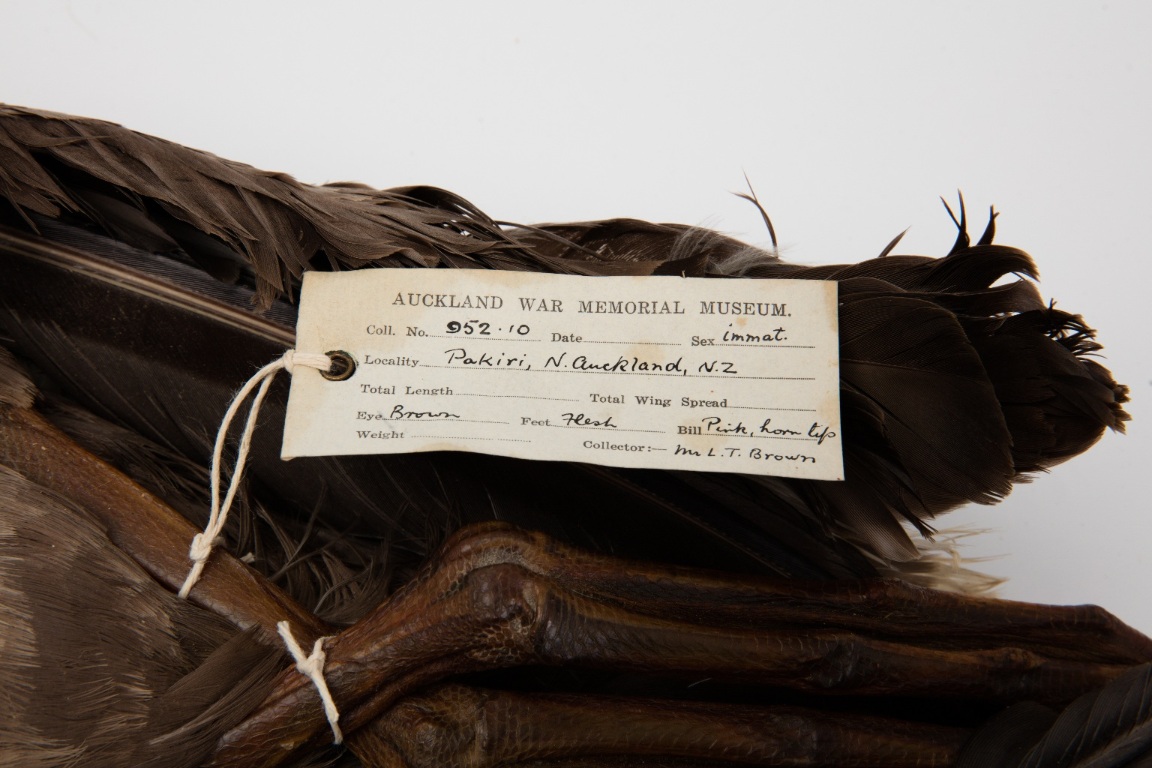 AUCKLAND WAR MEMORIAL MUSEUM.
Coll. No. 952.10 Date Sex immat.
Locality Pakiri, N. Auckland, N.Z
Total Length Total Wing Spread
Eye Brown Feet Flesh Bill Pink, horn tip
Weight Collector:— Mr L.T. Brown